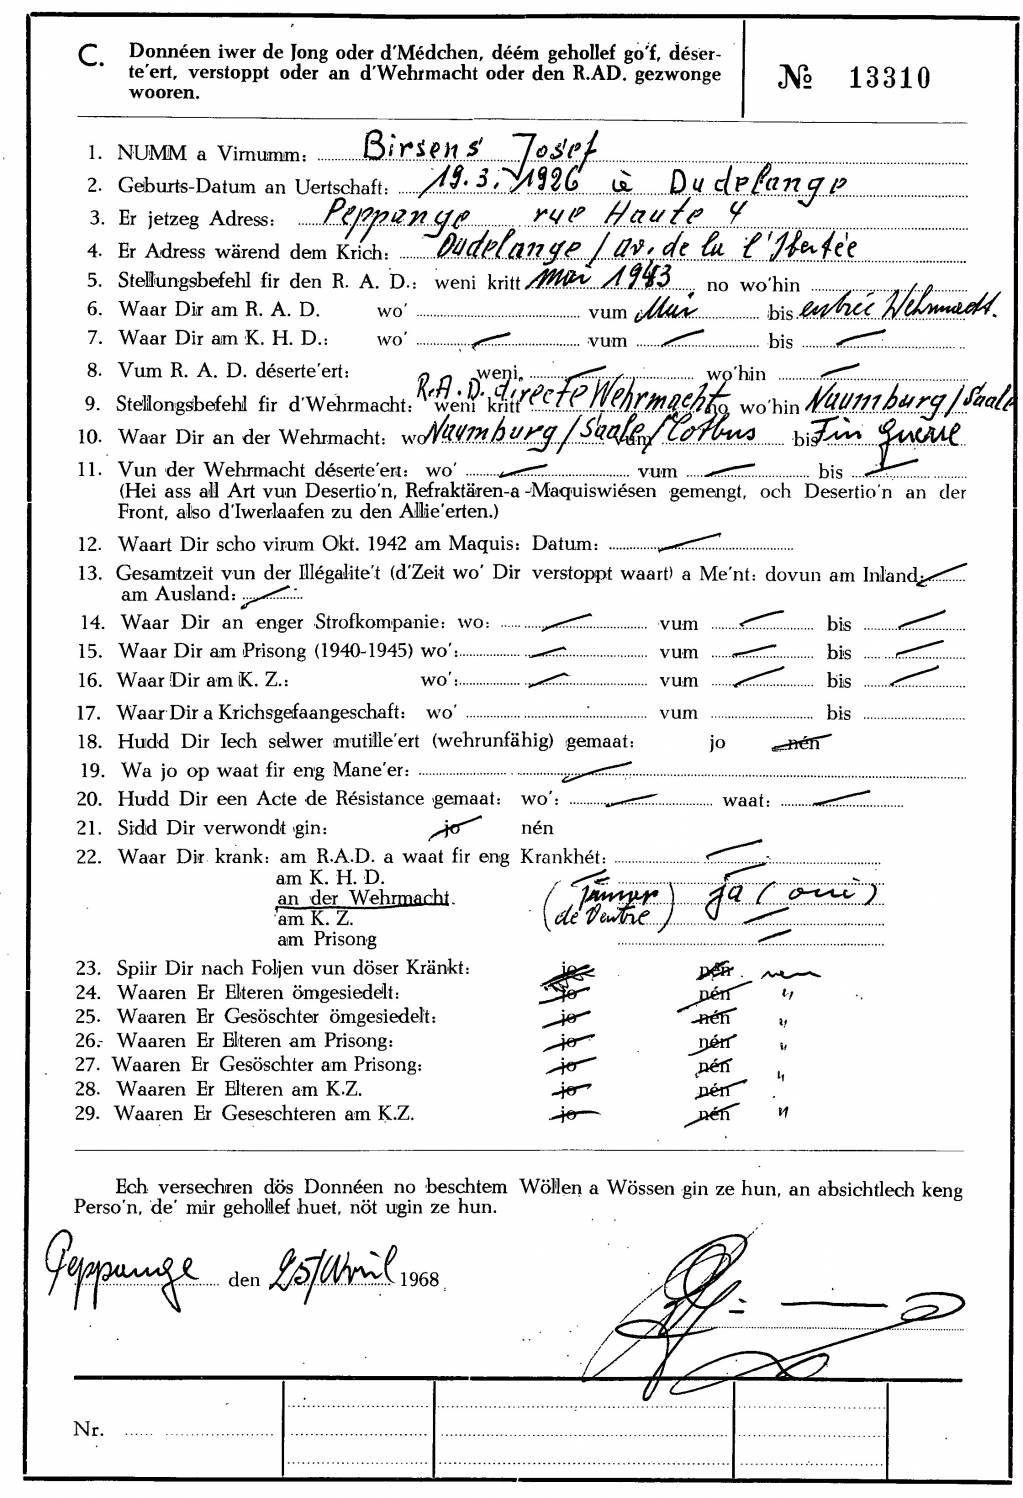 C. Donnéen iwer de Jong oder d'Médchen, déém gehollef go'f, déser-
te'ert, verstoppt oder an d'Wehrmacht oder den R.AD. gezwonge
wooren.
№ 13310
1. NUMM a Virnumm: Birsens Josef
2. Geburts-Datum an Uertschaft: 19.3.1926 à Dudelange
3. Er jetzeg Adress: Peppange rue Haute 4
4. Er Adress wärend dem Krich: Dudelange / av. de la l'
5. Stellungsbefehl fir den R. A. D.: weni kritt Mai 1943 no wo'hin
6. Waar Dir am R. A. D. wo' vum Mai bis entrée Wehrmacht.
7. Waar Dir am K. H. D.: wo' — vum — bis —
8. Vum R. A. D. déserte'ert: weni — wo'hin —
9. Stellongsbefehl fir d'Wehrmacht: weni kritt R.A.D. directe Wehrmacht no wo'hin Naumburg/Saale
10. Waar Dir an der Wehrmacht: wo Naumburg/Saale/Cotbus vum bis Fin guerre
11. Vun der Wehrmacht déserte'ert: wo' — vum — bis —
(Hei ass all Art vun Desertio'n, Refraktären-a -Maquiswiésen gemengt, och Desertio'n an der
Front, also d'Iwerlaafen zu den Allie'erten.)
12. Waart Dir scho virum Okt. 1942 am Maquis: Datum: —
13. Gesamtzeit vun der Illégalite't (d'Zeit wo' Dir verstoppt waart) a Me'nt: dovun am Inland: —
am Ausland: —
14. Waar Dir an enger Strofkompanie: wo: — vum — bis —
15. Waar Dir am Prisong (1940-1945) wo': — vum — bis —
16. Waar Dir am K. Z.: wo': — vum — bis —
17. Waar Dir a Krichsgefaangeschaft: wo' vum bis
18. Hudd Dir Iech selwer mutille'ert (wehrunfähig) gemaat: jo nén
19. Wa jo op waat fir eng Mane'er: —
20. Hudd Dir een Acte de Résistance gemaat: wo': — waat: —
21. Sidd Dir verwondt gin: jo nén
22. Waar Dir krank: am R.A.D. a waat fir eng Krankhét: —
am K. H. D. —
an der Wehrmacht. (de Ventre) ja (oui)
am K. Z. —
am Prisong —
23. Spiir Dir nach Foljen vun döser Kränkt: jo nén. nein
24. Waaren Er Elteren ömgesiedelt: jo nén "
25. Waaren Er Gesöschter ömgesiedelt: jo nén "
26. Waaren Er Elteren am Prisong: jo nén "
27. Waaren Er Gesöschter am Prisong: jo nén "
28. Waaren Er Elteren am K.Z. jo nén
29. Waaren Er Geseschteren am K.Z. jo nén "
Ech versechren dös Donnéen no beschtem Wöllen a Wössen gin ze hun, an absichtlech keng
Perso'n, de' mir gehollef huet, nöt ugin ze hun.
Peppange den 25/Avril 1968
Nr.